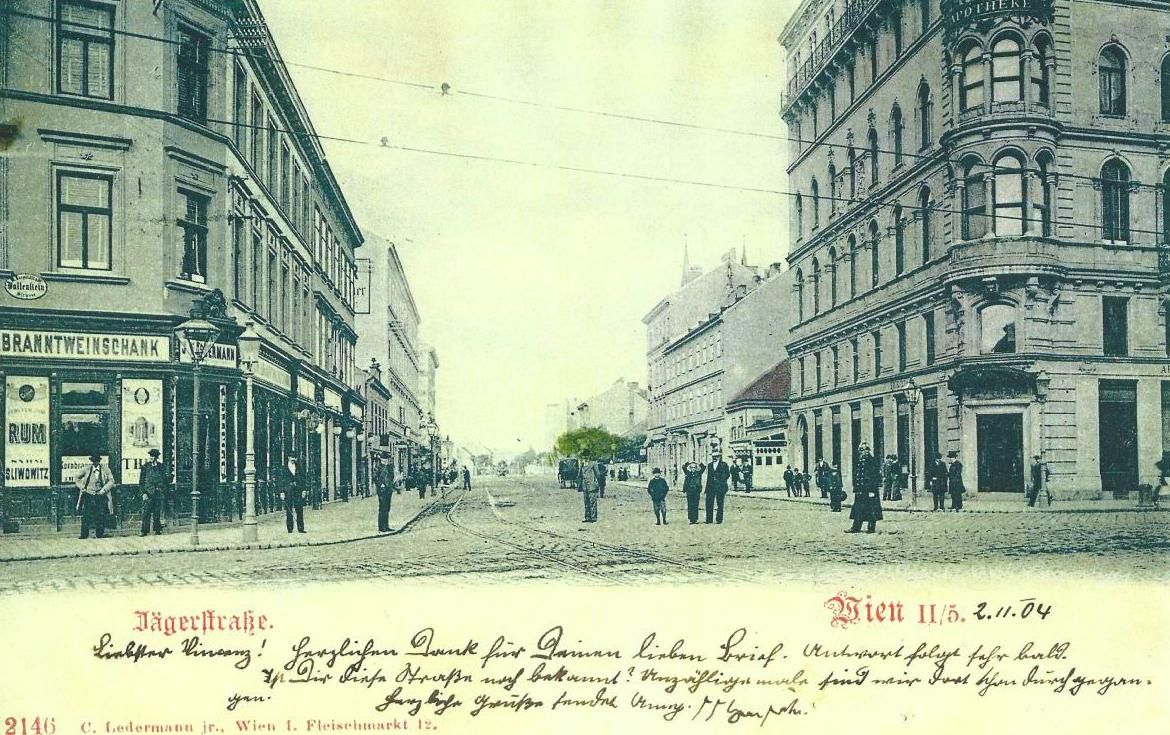 APOTHEKE
Wallenstein
BRANNTWEINSCHANK
RUM
SLIWOWITZ
Jägerstraße.
Wien II/5. 2.11.04
Liebster Vinzenz! Herzlichen Dank für Deinen lieben Brief. Antwort folgt sehr bald.
Ist Dir diese Straße noch bekannt? Unzählige male sind wir dort schon durchgegan-
gen. Herzliche Grüße sendet
2146 C. Ledermann jr., Wien I. Fleischmarkt 12.